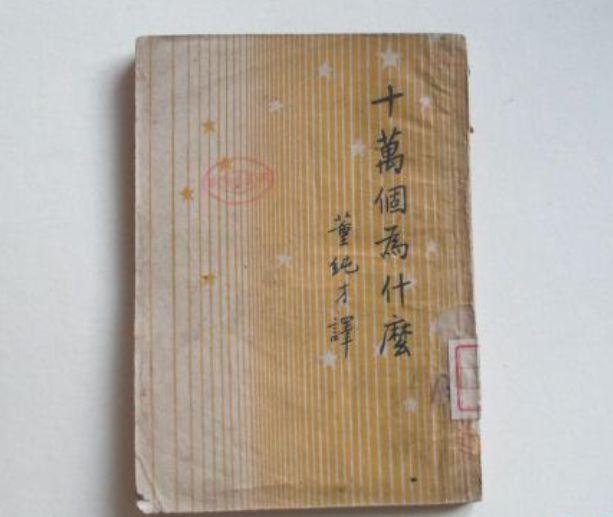 十萬個為什麼
董純才譯